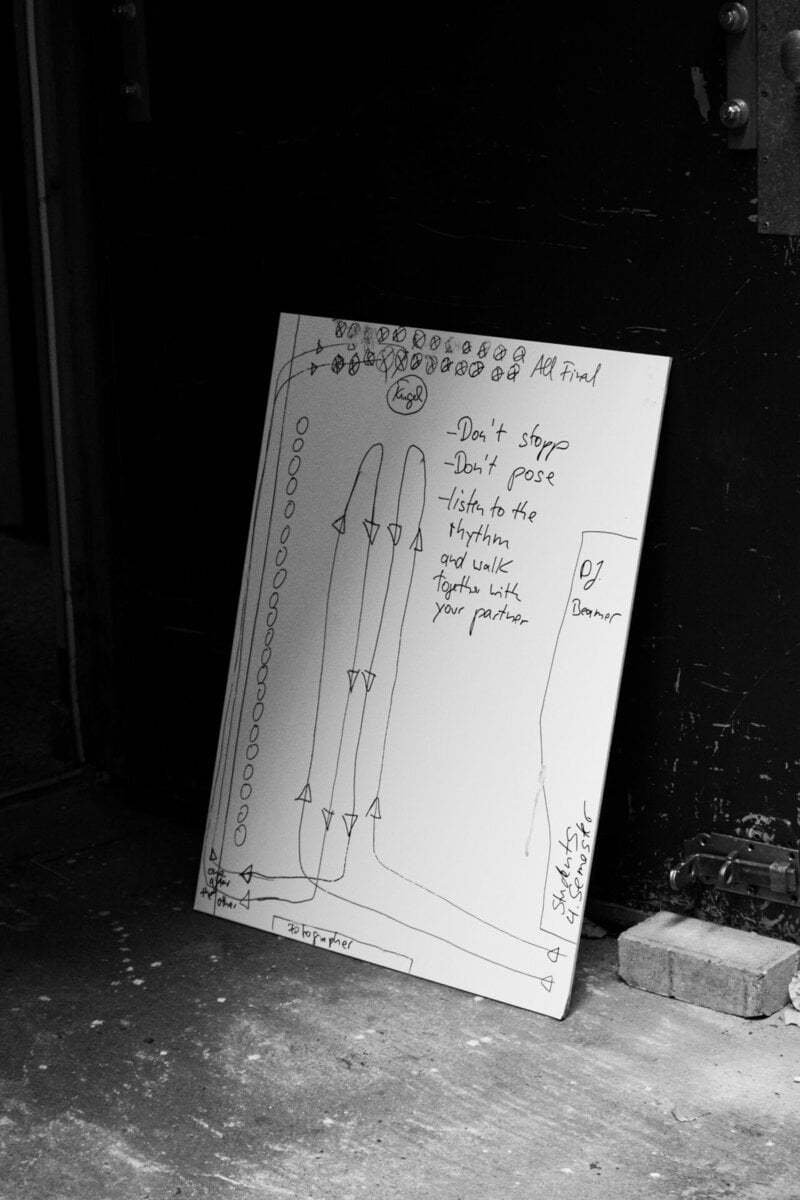 All Final
Kugel
-Don't stopp
-Don't pose
-listen to the
rhythm
and walk
together with
your partner
DJ
Beamer
Students
4. Semester
one
after
the other
Fotographer